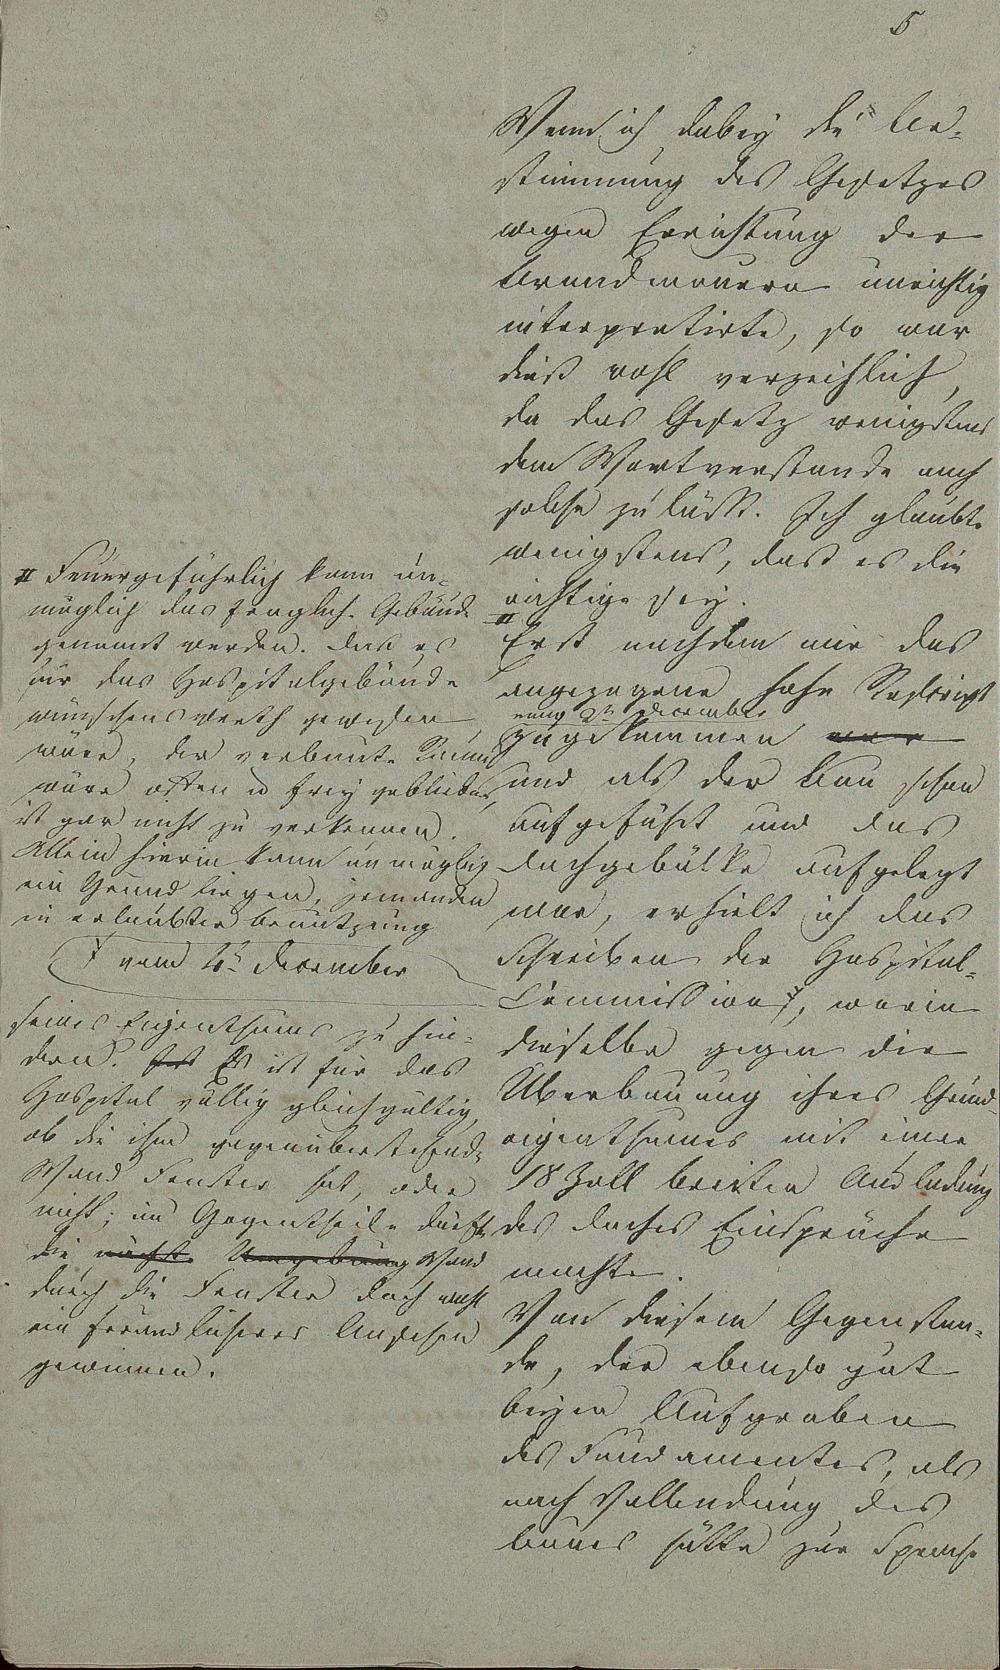 5
Wenn ich dabey die Be-
stimmung des Gesetzes
wegen Errichtung der
Brandmauern unrichtig
interpretirte, so war
dieß wohl verzeihlich,
da das Gesetz wenigstens
dem Wortverstande nach
solche zuläßt. Ich glaubte
wenigstens, daß es die
richtige sey.
#
Erst nachdem mir das
angezogene hohe Rescript
vom 2n December
zugekommen war
und als der Bau schon
aufgeführt und das
Dachgebälke aufgelegt
war, erhielt ich das
Schreiben der Hospital-
Commission ƒ, worin
dieselbe gegen die
Überbauung ihres Grund-
eigenthumes mit einer
18 Zoll breiten Ausladung
des Daches Einsprüche
machte.
Von diesem Gegenstan-
de, der ebenso gut
beym Aufgraben
des Fundamentes, als
nach Vollendung des
Baues hätte zur Sprache
# Feuergefährlich kann un-
möglich das fragliche Gebäude
genannt werden. Daß es
für das Hospitalgebäude
wünschenswerth gewesen
wäre, der verbaute Raum
wäre offen u frey geblieben,
ist gar nicht zu verkennen.
Allein hierin kann unmöglich
ein Grund liegen, jemanden
in erlaubter Benutzung
ƒ vom 4n December
seines Eigenthums zu hin-
dern. Es ist für das
Hospital völlig gleichgültig,
ob die ihm gegenüberstehende
Wand Fenster hat, oder
nicht; im Gegentheile dürfte
die nächste Umgebung Wand
durch die Fenster doch wohl
ein freundlicheres Ansehen
gewinnen.